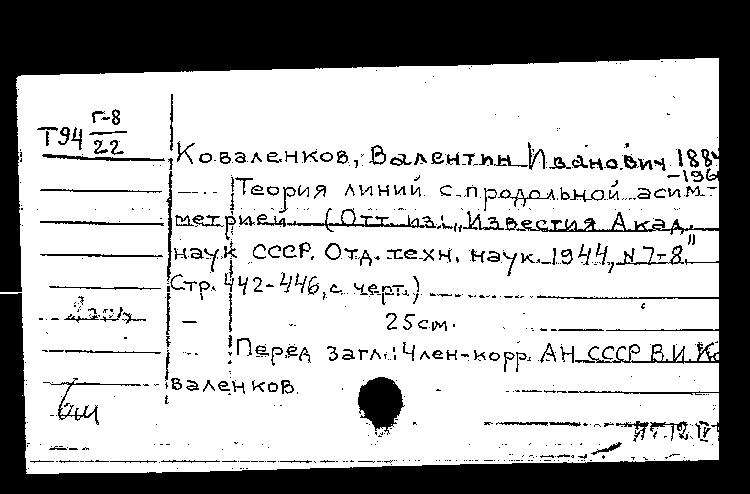 Т94 Г-8
22
Коваленков, Валентин Иванович 1884
-196
Теория линий с продольной асим-
метрией (Отт. из: „Известия Акад.
наук СССР. Отд. техн. наук. 1944, N 7-8."
Стр. 442-446, с черт.)
25 см.
Перед загл.: Член-корр. АН СССР В.И. Ко
валенков.